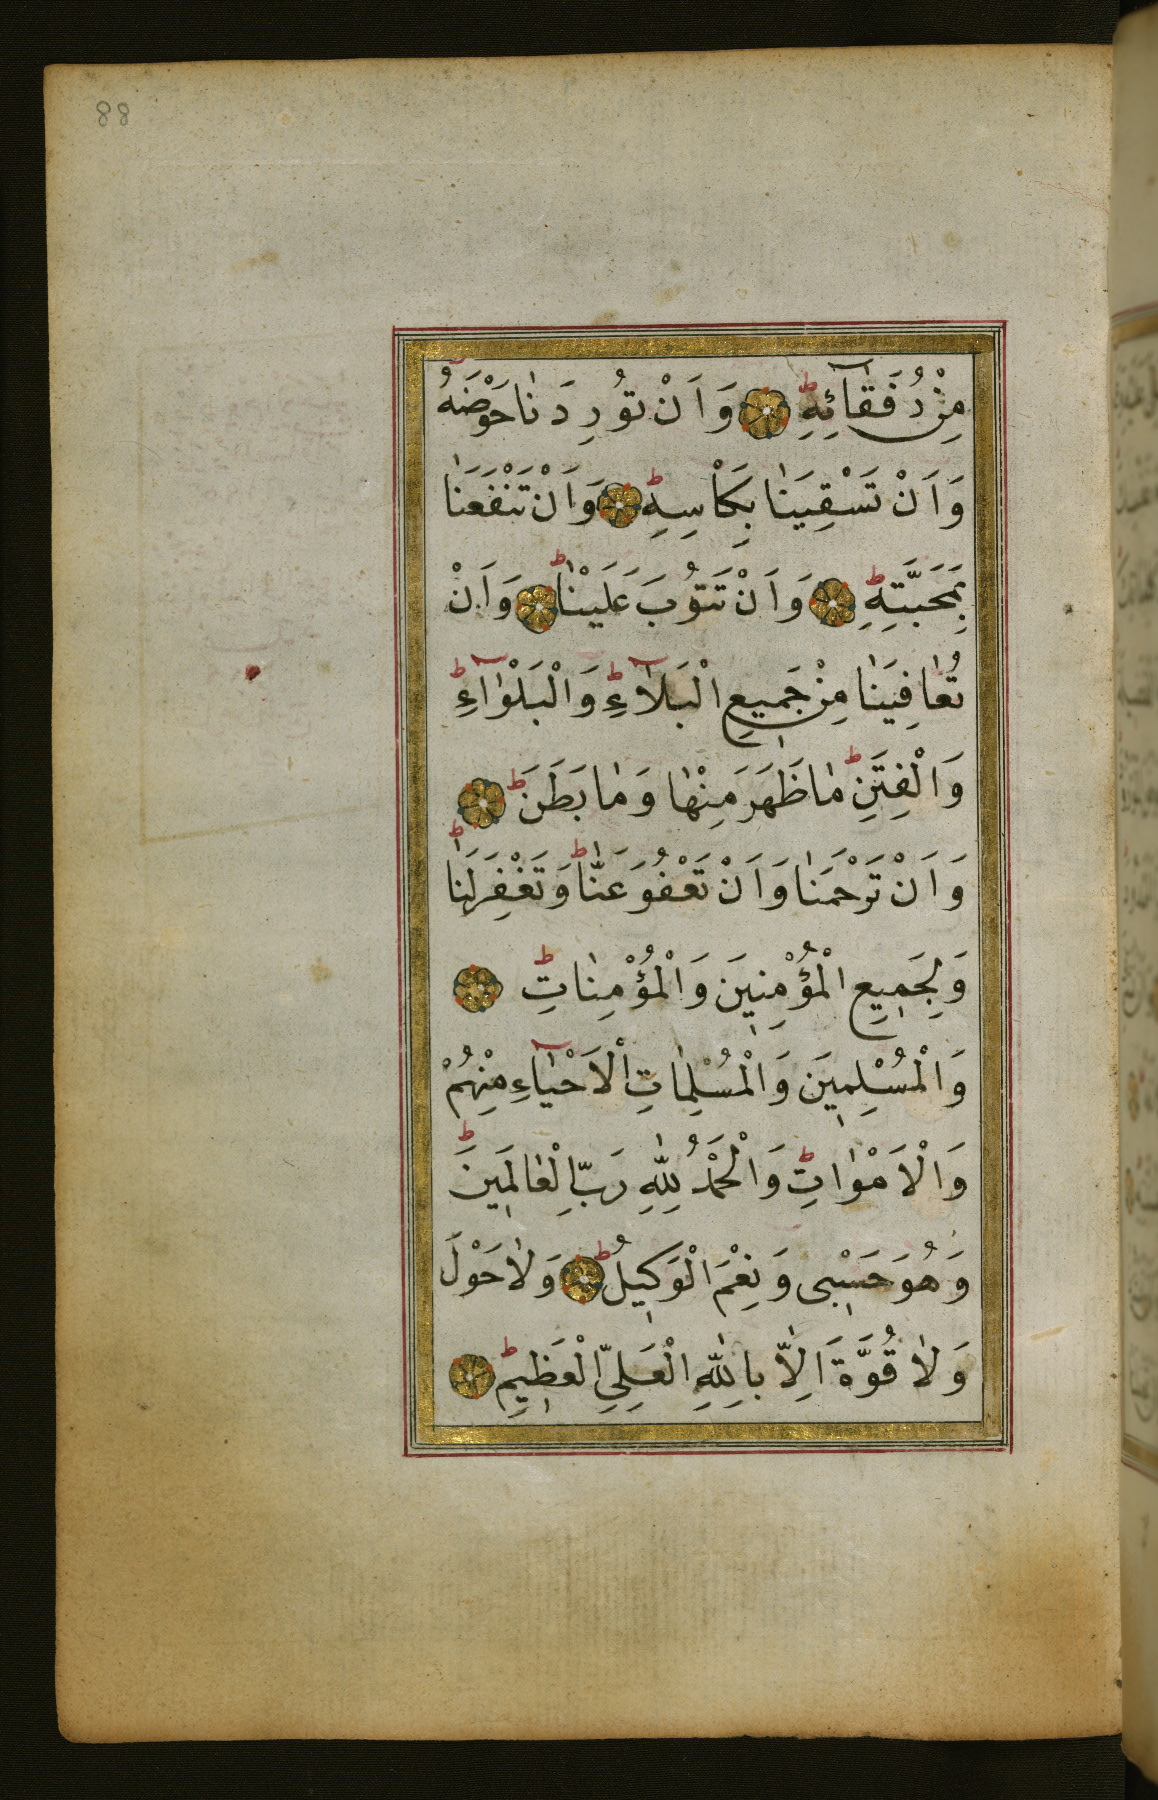 88
مِنْ رُفَقَآئِهِ ۞ وَاَنْ تُورِدَنَا حَوْضَهُ
وَاَنْ تَسْقِيَنَا بِكَاْسِهِ ۞ وَاَنْ تَنْفَعَنَا
بِمَحَبَّتِهِ ۞ وَاَنْ تَتُوبَ عَلَيْنَا ۞ وَاَنْ
تُعَافِيَنَا مِنْ جَمِيعِ الْبَلَآءِ وَالْبَلْوَآءِ
وَالْفِتَنِ مَا ظَهَرَ مِنْهَا وَمَا بَطَنَ ۞
وَاَنْ تَرْحَمَنَا وَاَنْ تَعْفُوَ عَنَّا وَتَغْفِرَ لَنَا
وَلِجَمِيعِ الْمُؤْمِنِينَ وَالْمُؤْمِنَاتِ ۞
وَالْمُسْلِمِينَ وَالْمُسْلِمَاتِ اْلاَحْيَآءِ مِنْهُمْ
وَالْاَمْوَاتِ وَالْحَمْدُ لِلّٰهِ رَبِّ الْعَالَمِينَ
وَهُوَ حَسْبِى وَنِعْمَ الْوَكِيلُ ۞ وَلَا حَوْلَ
وَلَا قُوَّةَ اِلَّا بِاللّٰهِ الْعَلِىِّ الْعَظِيمِ ۞